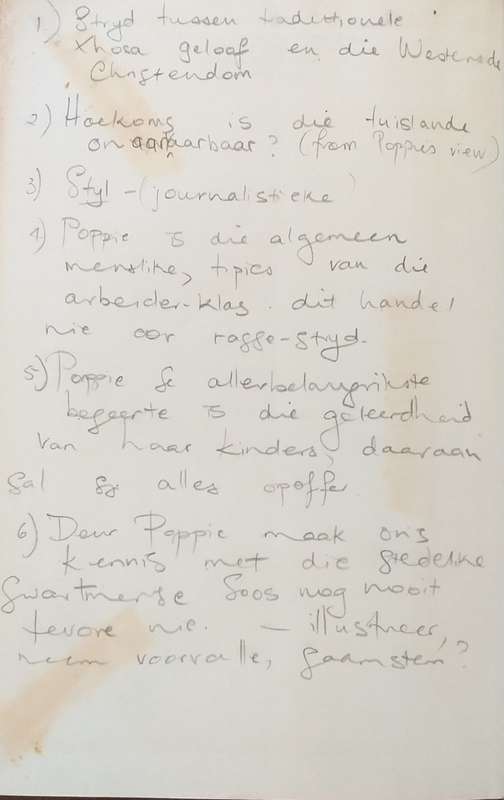 1) Stryd tussen tradisionele
Xhosa geloof en die Westerse
Christendom
2) Hoekoms is die tuislande
onaanvaarbaar? (from Poppies view)
3) Styl - (journalistieke)
4) Poppie is die algemeen
menslike, tipies van die
arbeider-klas. dit handel
nie oor rasse-stryd.
5) Poppie se allerbelangrikste
begeerte is die geleerdheid
van haar kinders, daaraan
sal sy alles opoffer
6) Deur Poppie maak ons
kennis met die stedelike
Swartmense soos nog nooit
tevore nie. - illustreer,
neem voorvalle,